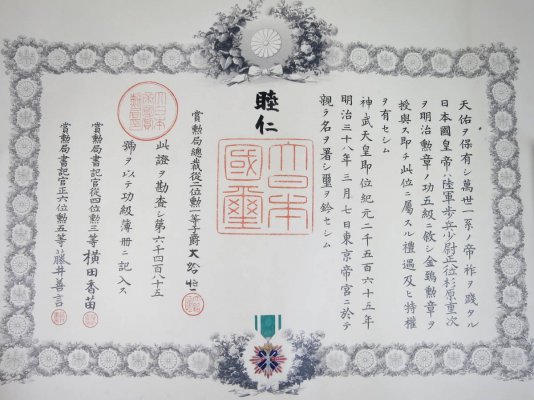 天佑ヲ保有シ萬世一系ノ帝祚ヲ踐タル
日本國皇帝ハ陸軍歩兵少尉正八位杉原重次
ヲ明治勲章ノ功五級ニ敘シ金鵄勲章ヲ
授與ス即チ此位ニ属スル禮遇及ヒ特権
ヲ有セシム
神武天皇即位紀元二千五百六十五年
明治三十八年三月七日東京帝宮ニ於テ
親ラ名ヲ署シ璽ヲ鈐セシム
睦仁
大日本國璽
賞勲局總裁從二位勲一等子爵大給恒
此證ヲ勘査シ第六千四百八十五
號ヲ以テ功級簿冊ニ記入ス
賞勲局書記官從四位勲三等横田香苗
賞勲局書記官正六位勲五等藤井善言